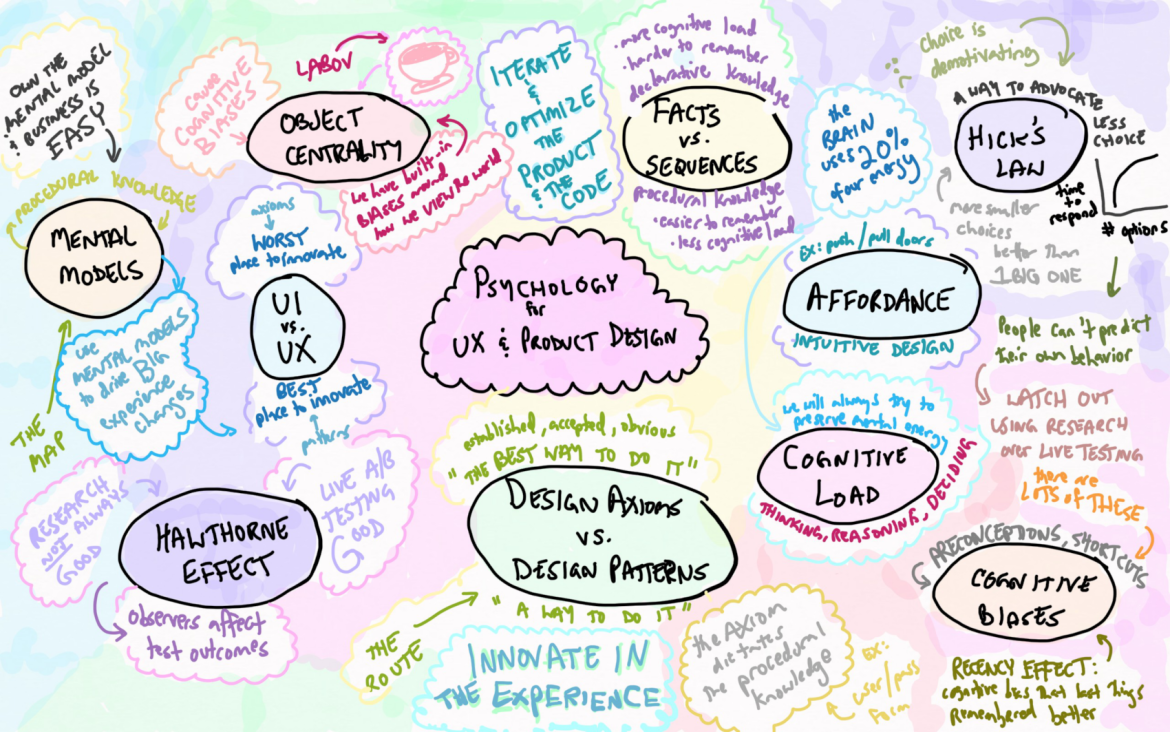 OWN THE
• MENTAL MODEL
& BUSINESS IS
EASY
PROCEDURAL KNOWLEDGE
MENTAL
MODELS
use
MENTAL MODELS
to drive BIG
experience
changes
THE
MAP
Cause
COGNITIVE
BIASES
LABOV
OBJECT
CENTRALITY
we have built-in
BIASES around
how we VIEW the world
axioms
WORST
place to innovate
UI
vs.
UX
BEST
place to innovate
patterns
RESEARCH
NOT ALWAYS
GOOD
HAWTHORNE
EFFECT
LIVE A/B
TESTING
GOOD
observers affect
test outcomes
ITERATE
&
OPTIMIZE
THE
PRODUCT
& THE
CODE
• more cognitive load
• harder to remember
declarative knowledge
FACTS
vs.
SEQUENCES
procedural knowledge
• easier to remember
• less cognitive load
PSYCHOLOGY
for
UX & PRODUCT DESIGN
established, accepted, obvious
"THE BEST WAY TO DO IT"
DESIGN AXIOMS
vs.
DESIGN PATTERNS
"A WAY TO DO IT"
THE
ROUTE
INNOVATE IN
THE EXPERIENCE
the AXIOM
dictates
the procedural
knowledge
EX:
user/pass
form
the
BRAIN
uses 20%
of our energy
EX: push/pull doors
AFFORDANCE
INTUITIVE DESIGN
we will always try to
preserve mental energy
COGNITIVE
LOAD
THINKING, REASONING, DECIDING
choice is
demotivating
A WAY TO ADVOCATE
LESS
CHOICE
HICK'S
LAW
time
to
respond
# options
more smaller
choices
better than
1 BIG ONE
People can't predict
their own behavior
WATCH OUT
USING RESEARCH
over LIVE TESTING
there are
LOTS of THESE
PRECONCEPTIONS, SHORTCUTS
COGNITIVE
BIASES
RECENCY EFFECT:
cognitive bias that last things
remembered better